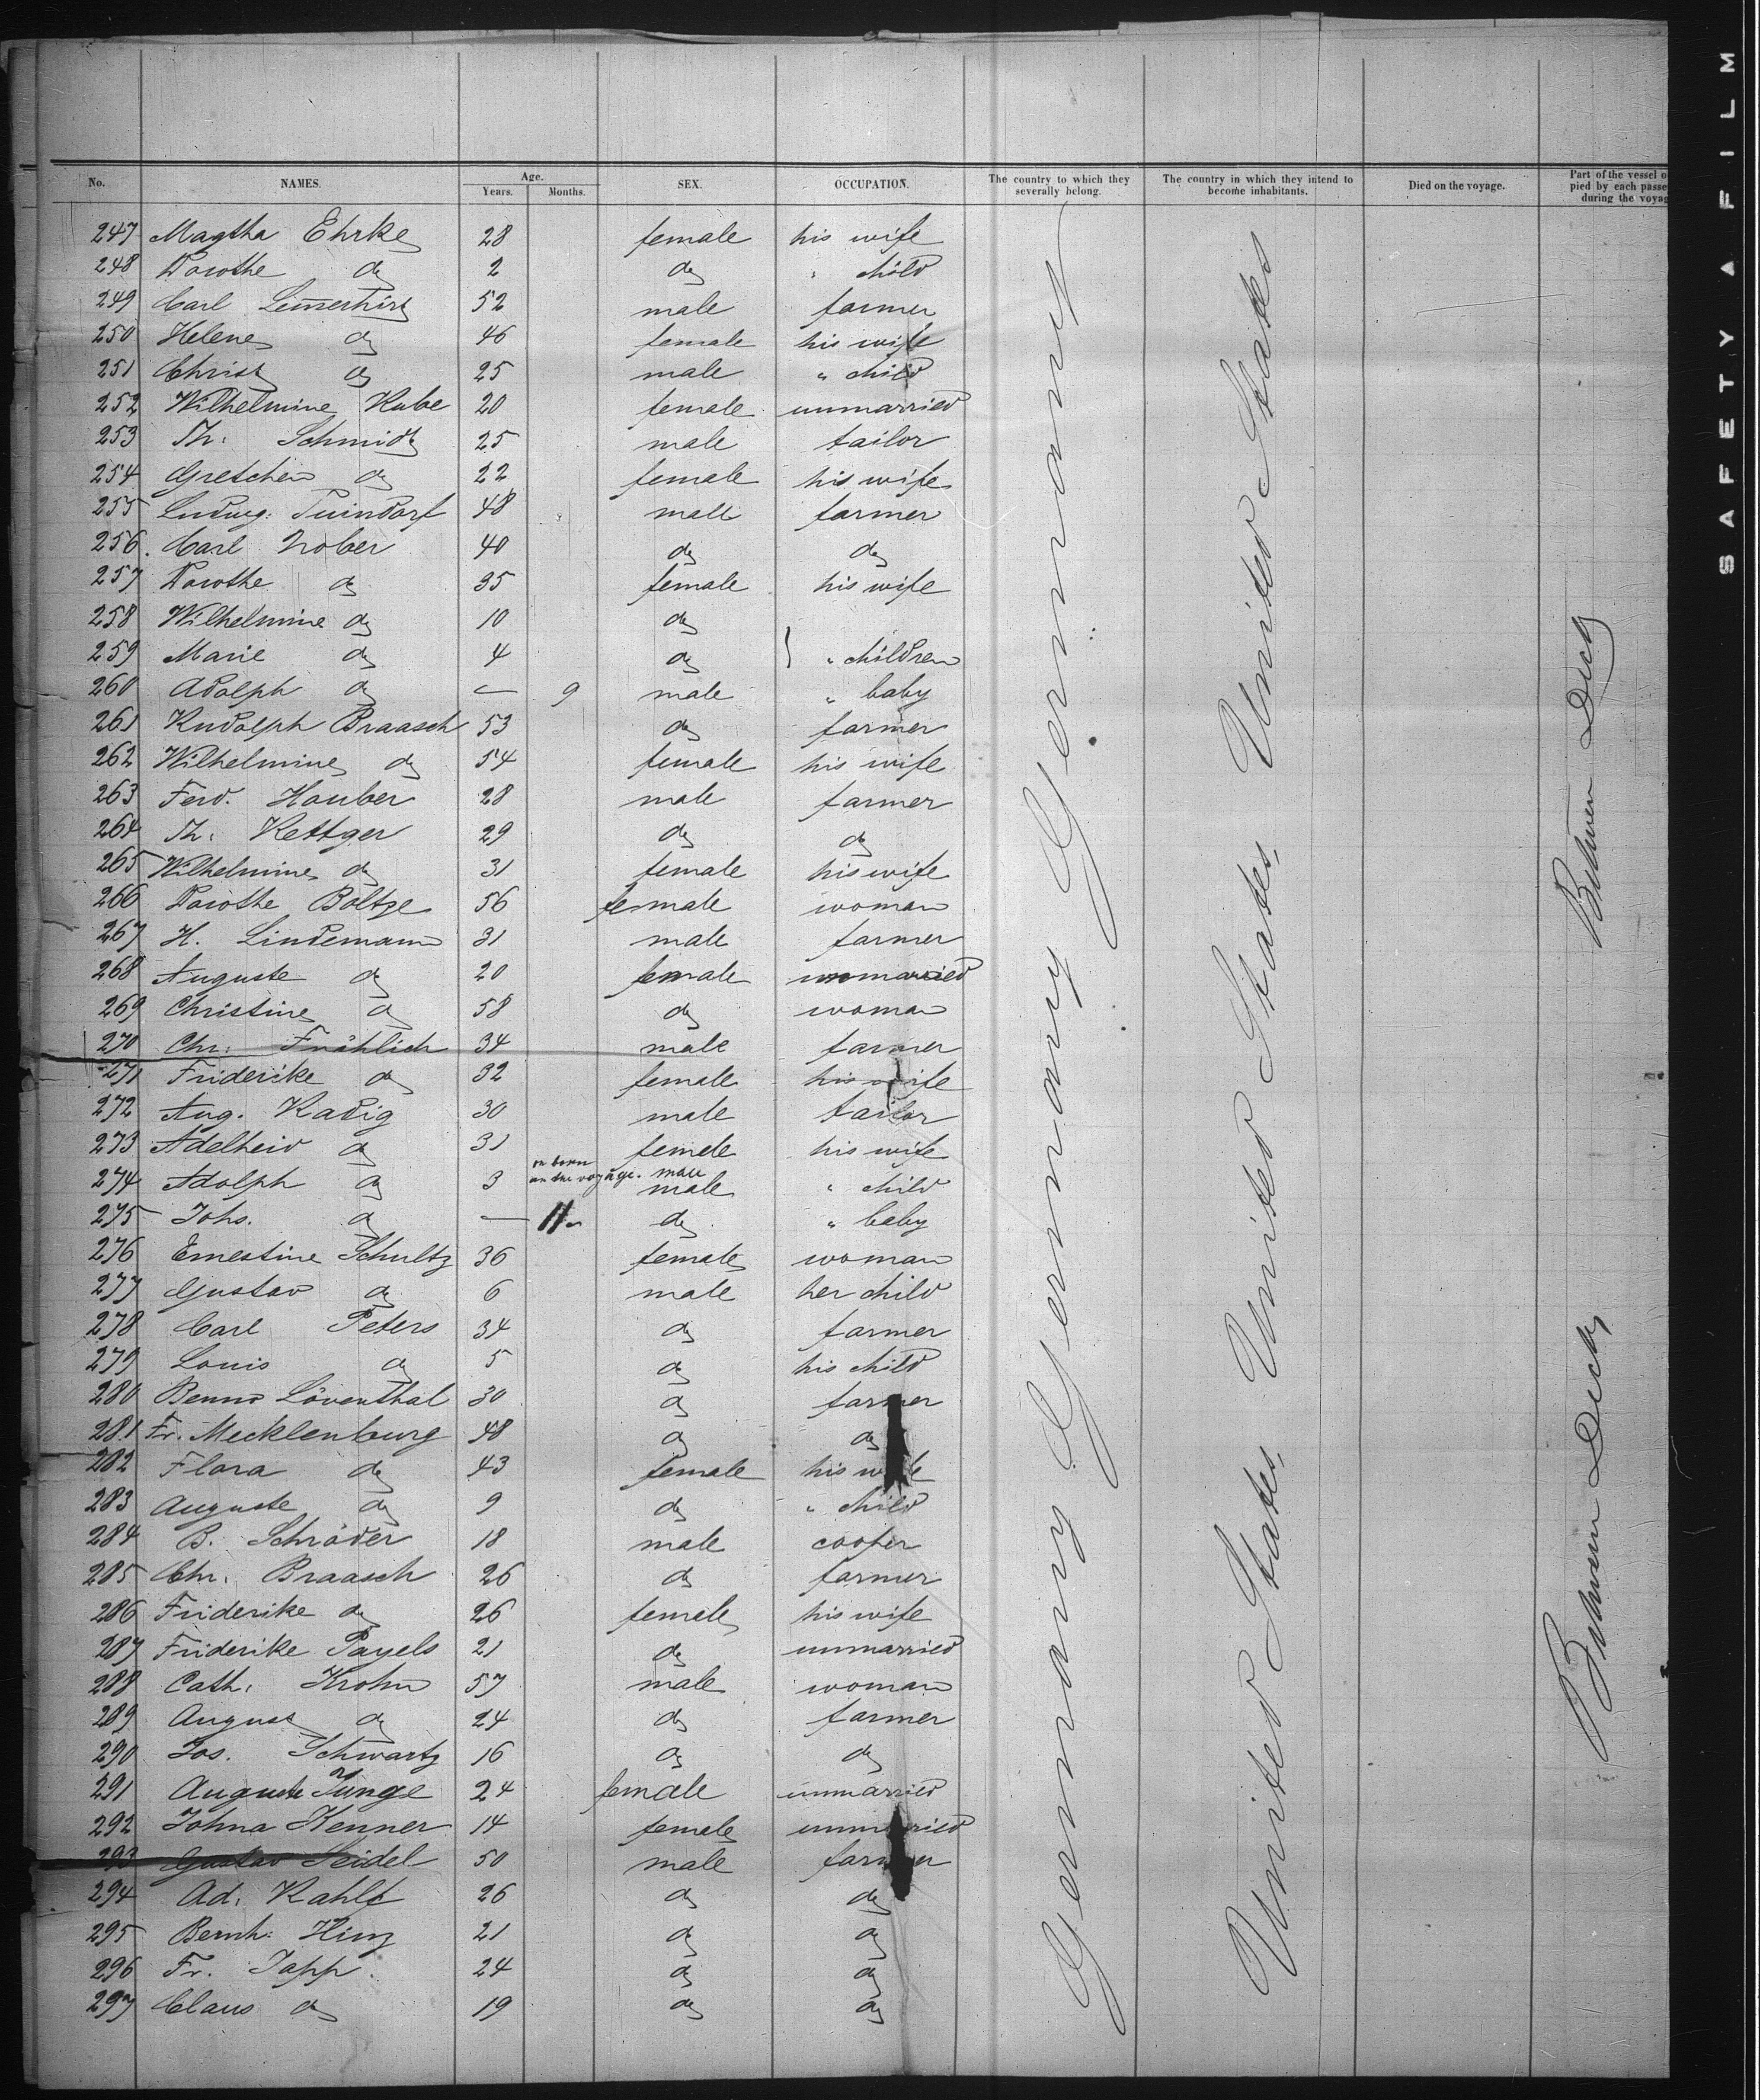 No. NAMES. Age. Years. Months. SEX. OCCUPATION. The country to which they severally belong. The country in which they intend to become inhabitants. Died on the voyage. Part of the vessel o pied by each passe during the voyag
247 Magtha Ehrke 28 female his wife
248 Dorothe do 2 do " child
249 Carl 52 male farmer
250 Helene do 46 female his wife
251 Christ do 25 male " child
252 Wilhelmine Kube 20 female unmarried
253 Th: Schmidt 25 male tailor
254 Gretchen do 22 female his wife
255 Ludwig 48 male farmer
256. Carl 40 do do
257 Dorothe do 35 female his wife
258 Wilhelmine do 10 do
259 Marie do 4 do } " children
260 Adolph do — 9 male " baby
261 Rudolph Braasch 53 do farmer
262 Wilhelmine do 54 female his wife
263 Ferd. Hauber 28 male farmer
264 Th: Rettger 29 do do
265 Wilhelmine do 31 female his wife
266 Dorothe Boltge 56 female woman
267 H. Lindemann 31 male farmer
268 Auguste do 20 female unmarried
269 Christine do 58 do woman
270 Chr: Fröhlich 34 male farmer
271 Friderike do 32 female his wife
272 Aug. Radig 30 male tailor
273 Adelheid do 31 female his wife
274 Adolph do 3 born on the voyage. male male " child
275 Johs. do — 11 do " baby
276 Ernestine Schultz 36 female woman
277 Gustav do 6 male her child
278 Carl Peters 34 do farmer
279 Louis do 5 do his child
280 Benno Löventhal 30 do farmer
281 Fr. Mecklenburg 48 do do
282 Flora do 43 female his wife
283 Auguste do 9 do " child
284 B. Schröder 18 male cooper
285 Chr. Braasch 26 do farmer
286 Friderike do 26 female his wife
287 Friderike Payels 21 do unmarried
288 Cath. Krohn 57 male woman
289 August do 24 do farmer
290 Jos. Schwartz 16 do do
291 Auguste Junge 24 female unmarried
292 Johna Kenner 14 female unmarried
293 Gustav Seidel 50 male farmer
294 Ad. Kahlf 26 do do
295 Bernh. Hinz 21 do do
296 Fr. Japp. 24 do do
297 Claus do 19 do do
Germany Germany Germany Germany
United States United States, United States, United States
Between Deck
Between Deck
SAFETY A FILM